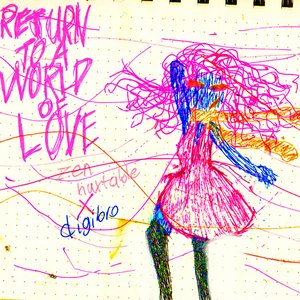 RETURN
TO A
WORLD
OF
LOVE
zen
huxtable
x
digibro